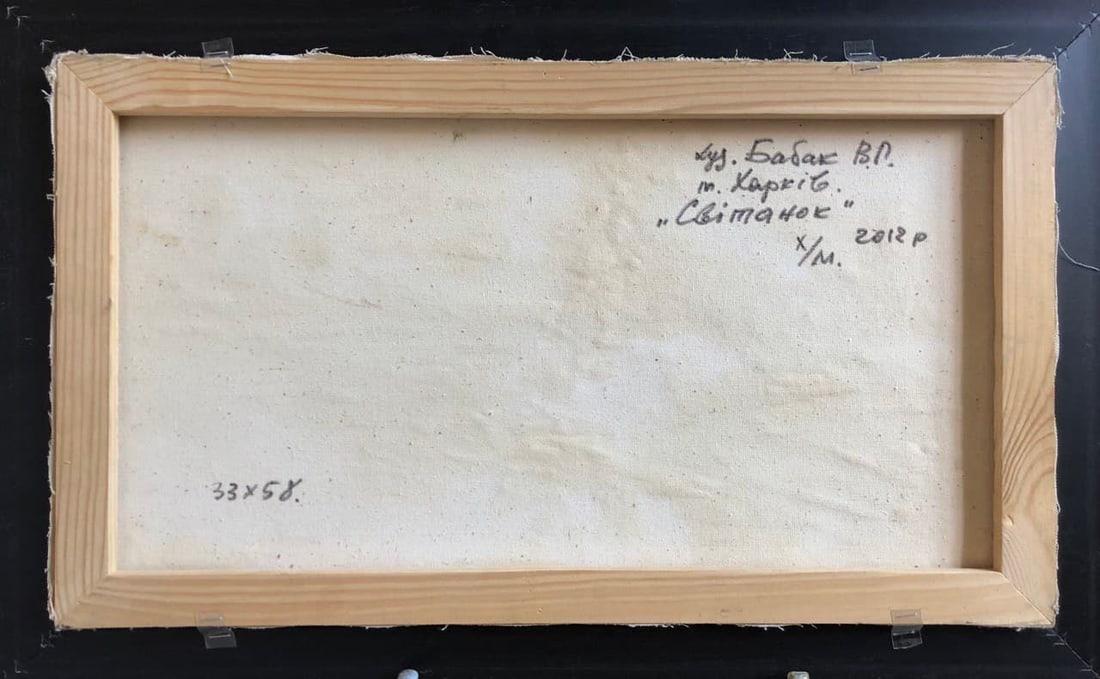 худ. Бабак В.П.
м. Харків.
„Світанок"
х/м. 2012 р
33х58.